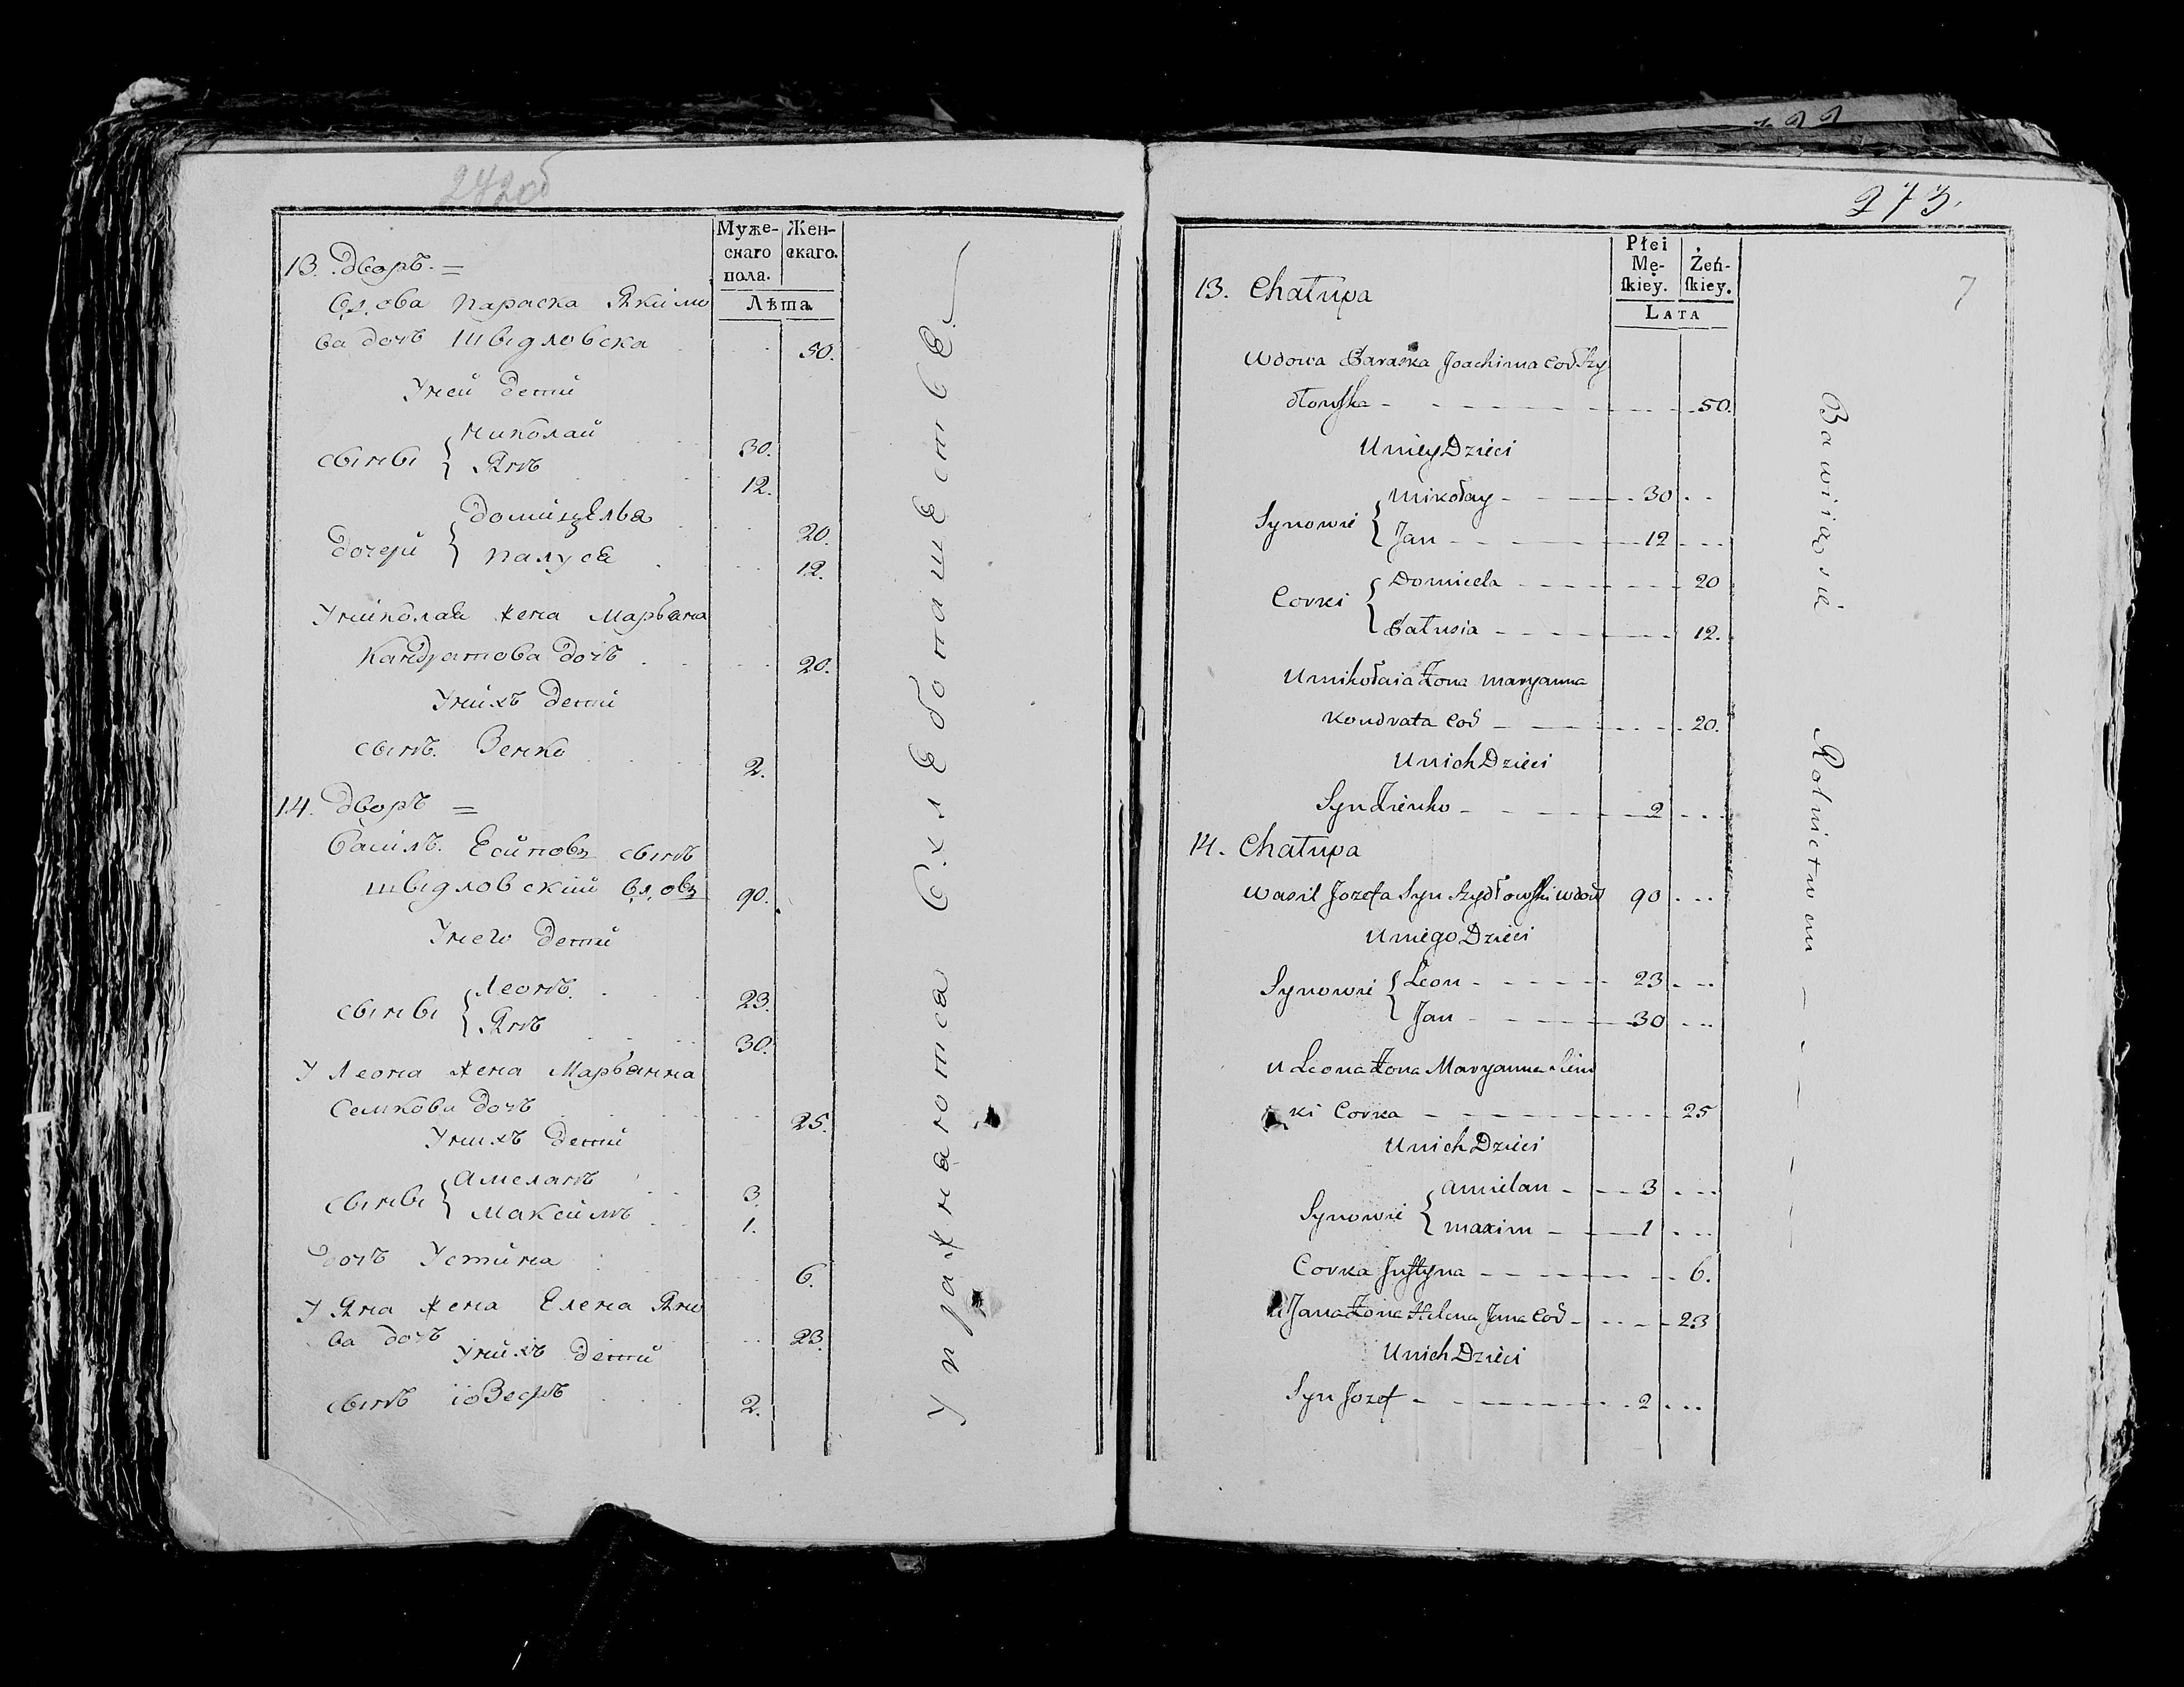 272об
Муже-
скаго
пола.
Жен-
скаго.
Лѣта
13. Дворъ. =
Вдова Параска Якимо
ва дочъ Шыдловска 50.
У ней дети
Сыны { Николай 30.
Янъ 12.
Дочери { Доминцеля 20.
Палуся 12.
У Николая жена Марьяна
Кандратова дочъ 20.
У нихъ дети
Сынъ. Зенко 2.
14. Дворъ =
Василъ. Есиповъ сынъ
Шыдловский вдовъ 90.
У него дети
Сыны { Леонъ. 23.
Янъ 30.
У Леона жена Марьянна
Семкова дочъ 25.
У нихъ дети
Сыны { Амелянъ 3.
Максимъ 1.
дочъ Устина 6.
У Яна жена Елена Яно
ва дочъ 23.
У нихъ дети
Сынъ іозефъ 2.
Упражняются в хлебопашестве.
273.
7
Płei
Mę-
skiey.
Żeń-
skiey.
LATA
13. Chałupa
Wdowa Paraska Joachima Cod Szy
dłowska 50.
U niey Dzieci
Synowie { Mikołay 30
Jan 12
Corki { Domicela 20
Pałusia 12.
U Mikołaia Żona Maryanna
Kondrata Cod 20.
U nich Dzieci
Syn Zienko 2
14. Chałupa
Wasil Jozefa Syn Szydłowski wdow 90
U niego Dzieci
Synowie { Leon 23
Jan 30
U Leona Żona Maryanna Siem
ki Corka 25
U nich Dzieci
Synowie { Amielan 3
Maxim 1
Corka Justyna 6.
U Jana Żona Helena Jana Cod 23
U nich Dzieci
Syn Jozef 2
Bawią się Rolnictwem